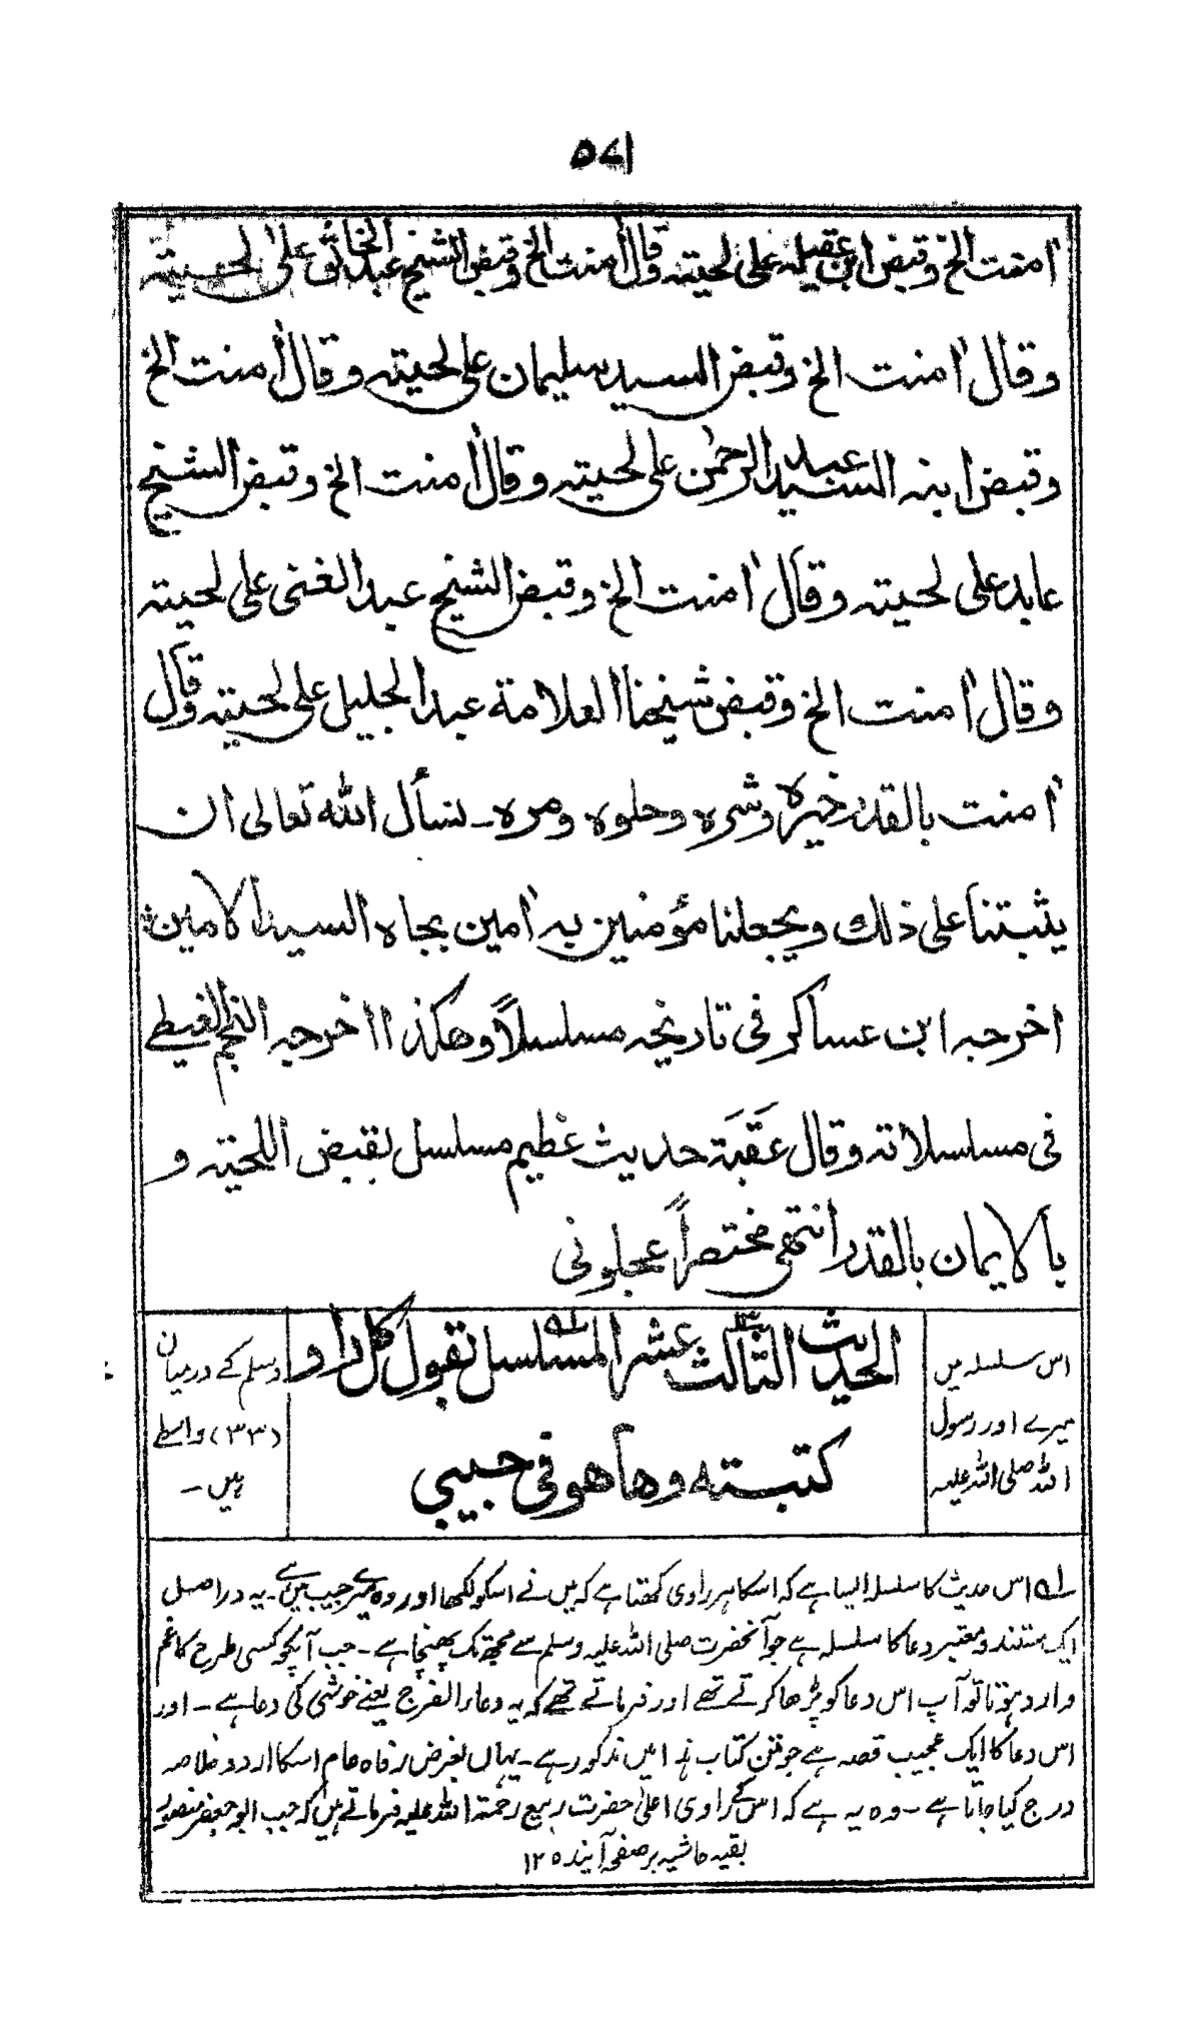 ۵۷۱
اٰمنت الخ وقبض ابن عقیلہ علی لحیتہ وقال اٰمنت الخ وقبض الشیخ عبد الخالق علیٰ لحیتہ
وقال اٰمنت الخ وقبض السید سلیمان علی لحیتہ وقال اٰمنت الخ
وقبض ابنہ السید عبد الرحمٰن علی لحیتہ وقال اٰمنت الخ وقبض الشیخ
عابد علی لحیتہ وقال اٰمنت الخ وقبض الشیخ عبد الغنی علی لحیتہ
وقال اٰمنت الخ وقبض شیخنا العلامۃ عبد الجلیل علی لحیتہ وقال
اٰمنت بالقدر خیرہ وشرہ وحلوہ ومرہ ۔ نسأل اللہ تعالی ان
یثبتنا علی ذلک ویجعلنا مؤمنین بہ اٰمین بجاہ السید الامین
اخرجہ ابن عساکر فی تاریخہ مسلسلاً وھکذا اخرجہ النجم الغیطی
فی مسلسلاتہ وقال عَقَبَۃ حدیث عظیم مسلسل بقبض اللحیتہ و
بالایمان بالقدر انتھی مختصراً عجلونی
الحدیث الثالث عشر المسلسل بقول کل راو
کتبتہ وھا ھو فی جیبی
اس سلسلہ میں
میرے اور رسول
اللہ صلی اللہ علیہ
وسلم کے درمیان
(۳۳) واسطے
ہیں ۔
لہ اس حدیث کا سلسلہ ایسا ہے کہ اسکا ہر راوی کہتا ہے کہ میں نے اسکو لکھا اور وہ میرے جیب میں ہے ۔ یہ دراصل
ایک مستند و معتبر دعا کا سلسلہ ہے جو آنحضرت صلی اللہ علیہ وسلم سے مجھ تک پہنچا ہے ۔ جب آپکو کسی طرح کا غم
وارد ہوتا تو آپ اس دعا کو پڑھا کرتے تھے اور فرماتے تھے کہ یہ دعاء الفرج یعنے خوشی کی دعا ہے ۔ اور
اس دعا کا ایک عجیب قصہ ہے جو متن کتاب ہٰذا میں مذکور ہے ۔ یہاں بغرض رفاہ عام اسکا اردو خلاصہ
درج کیا جاتا ہے ۔ وہ یہ ہے کہ اس کے راوی اعلیٰ حضرت ربیع رحمۃ اللہ علیہ فرماتے ہیں کہ جب ابو جعفر منصور
بقیہ حاشیہ بر صفحہ آیندہ ۱۲